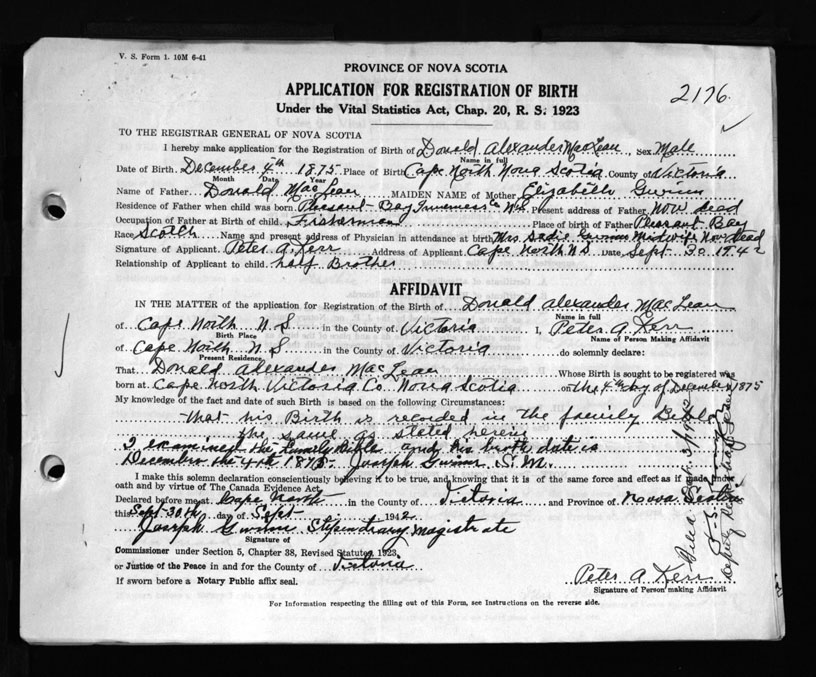 V. S. Form 1. 10M 6-41
PROVINCE OF NOVA SCOTIA
APPLICATION FOR REGISTRATION OF BIRTH
2176.
Under the Vital Statistics Act, Chap. 20, R. S. 1923
TO THE REGISTRAR GENERAL OF NOVA SCOTIA
I hereby make application for the Registration of Birth of Donald Alexander MacLean, Sex Male
Name in full
Date of Birth. December 4th 1875 Place of Birth Cape North Nova Scotia County of Victoria
Month Date Year
Name of Father Donald MacLean MAIDEN NAME of Mother Elizabeth
Residence of Father when child was born Pleasant-Bay Inverness Co Present address of Father Now dead
Occupation of Father at Birth of child. Fisherman Place of birth of Father Pleasant Bay
Race Scotch Name and present address of Physician in attendance at birth Mrs Sadie Midwife Now dead
Signature of Applicant Peter A. Kerr Address of Applicant Cape North N S Date Sept. 30 1942
Relationship of Applicant to child. half Brother
AFFIDAVIT
IN THE MATTER of the application for Registration of the Birth of Donald Alexander MacLean
Name in full
of Cape North N S in the County of Victoria I, Peter A Kerr
Birth Place Name of Person Making Affidavit
of Cape North N S in the County of Victoria do solemnly declare:
Present Residence
That Donald Alexander MacLean Whose Birth is sought to be registered was
born at Cape North Victoria Co. Nova Scotia on the 4th day of December 1875
My knowledge of the fact and date of such Birth is based on the following Circumstances:
that his Birth is recorded in the family Bible
the same as stated herein
I examined the family Bible and his birth date is
December the 4th 1875- Joseph S. M.
I make this solemn declaration conscientiously believing it to be true, and knowing that it is of the same force and effect as if made under
oath and by virtue of The Canada Evidence Act.
Declared before me at Cape North in the County of Victoria and Province of Nova Scotia
this Sept-30th day of Sept 1942
Joseph Stipendiary Magistrate
Signature of
Commissioner under Section 5, Chapter 38, Revised Statutes 1923.
or Justice of the Peace in and for the County of Victoria
If sworn before a Notary Public affix seal.
Peter A. Kerr
Signature of Person making Affidavit
For Information respecting the filling out of this Form, see Instructions on the reverse side.